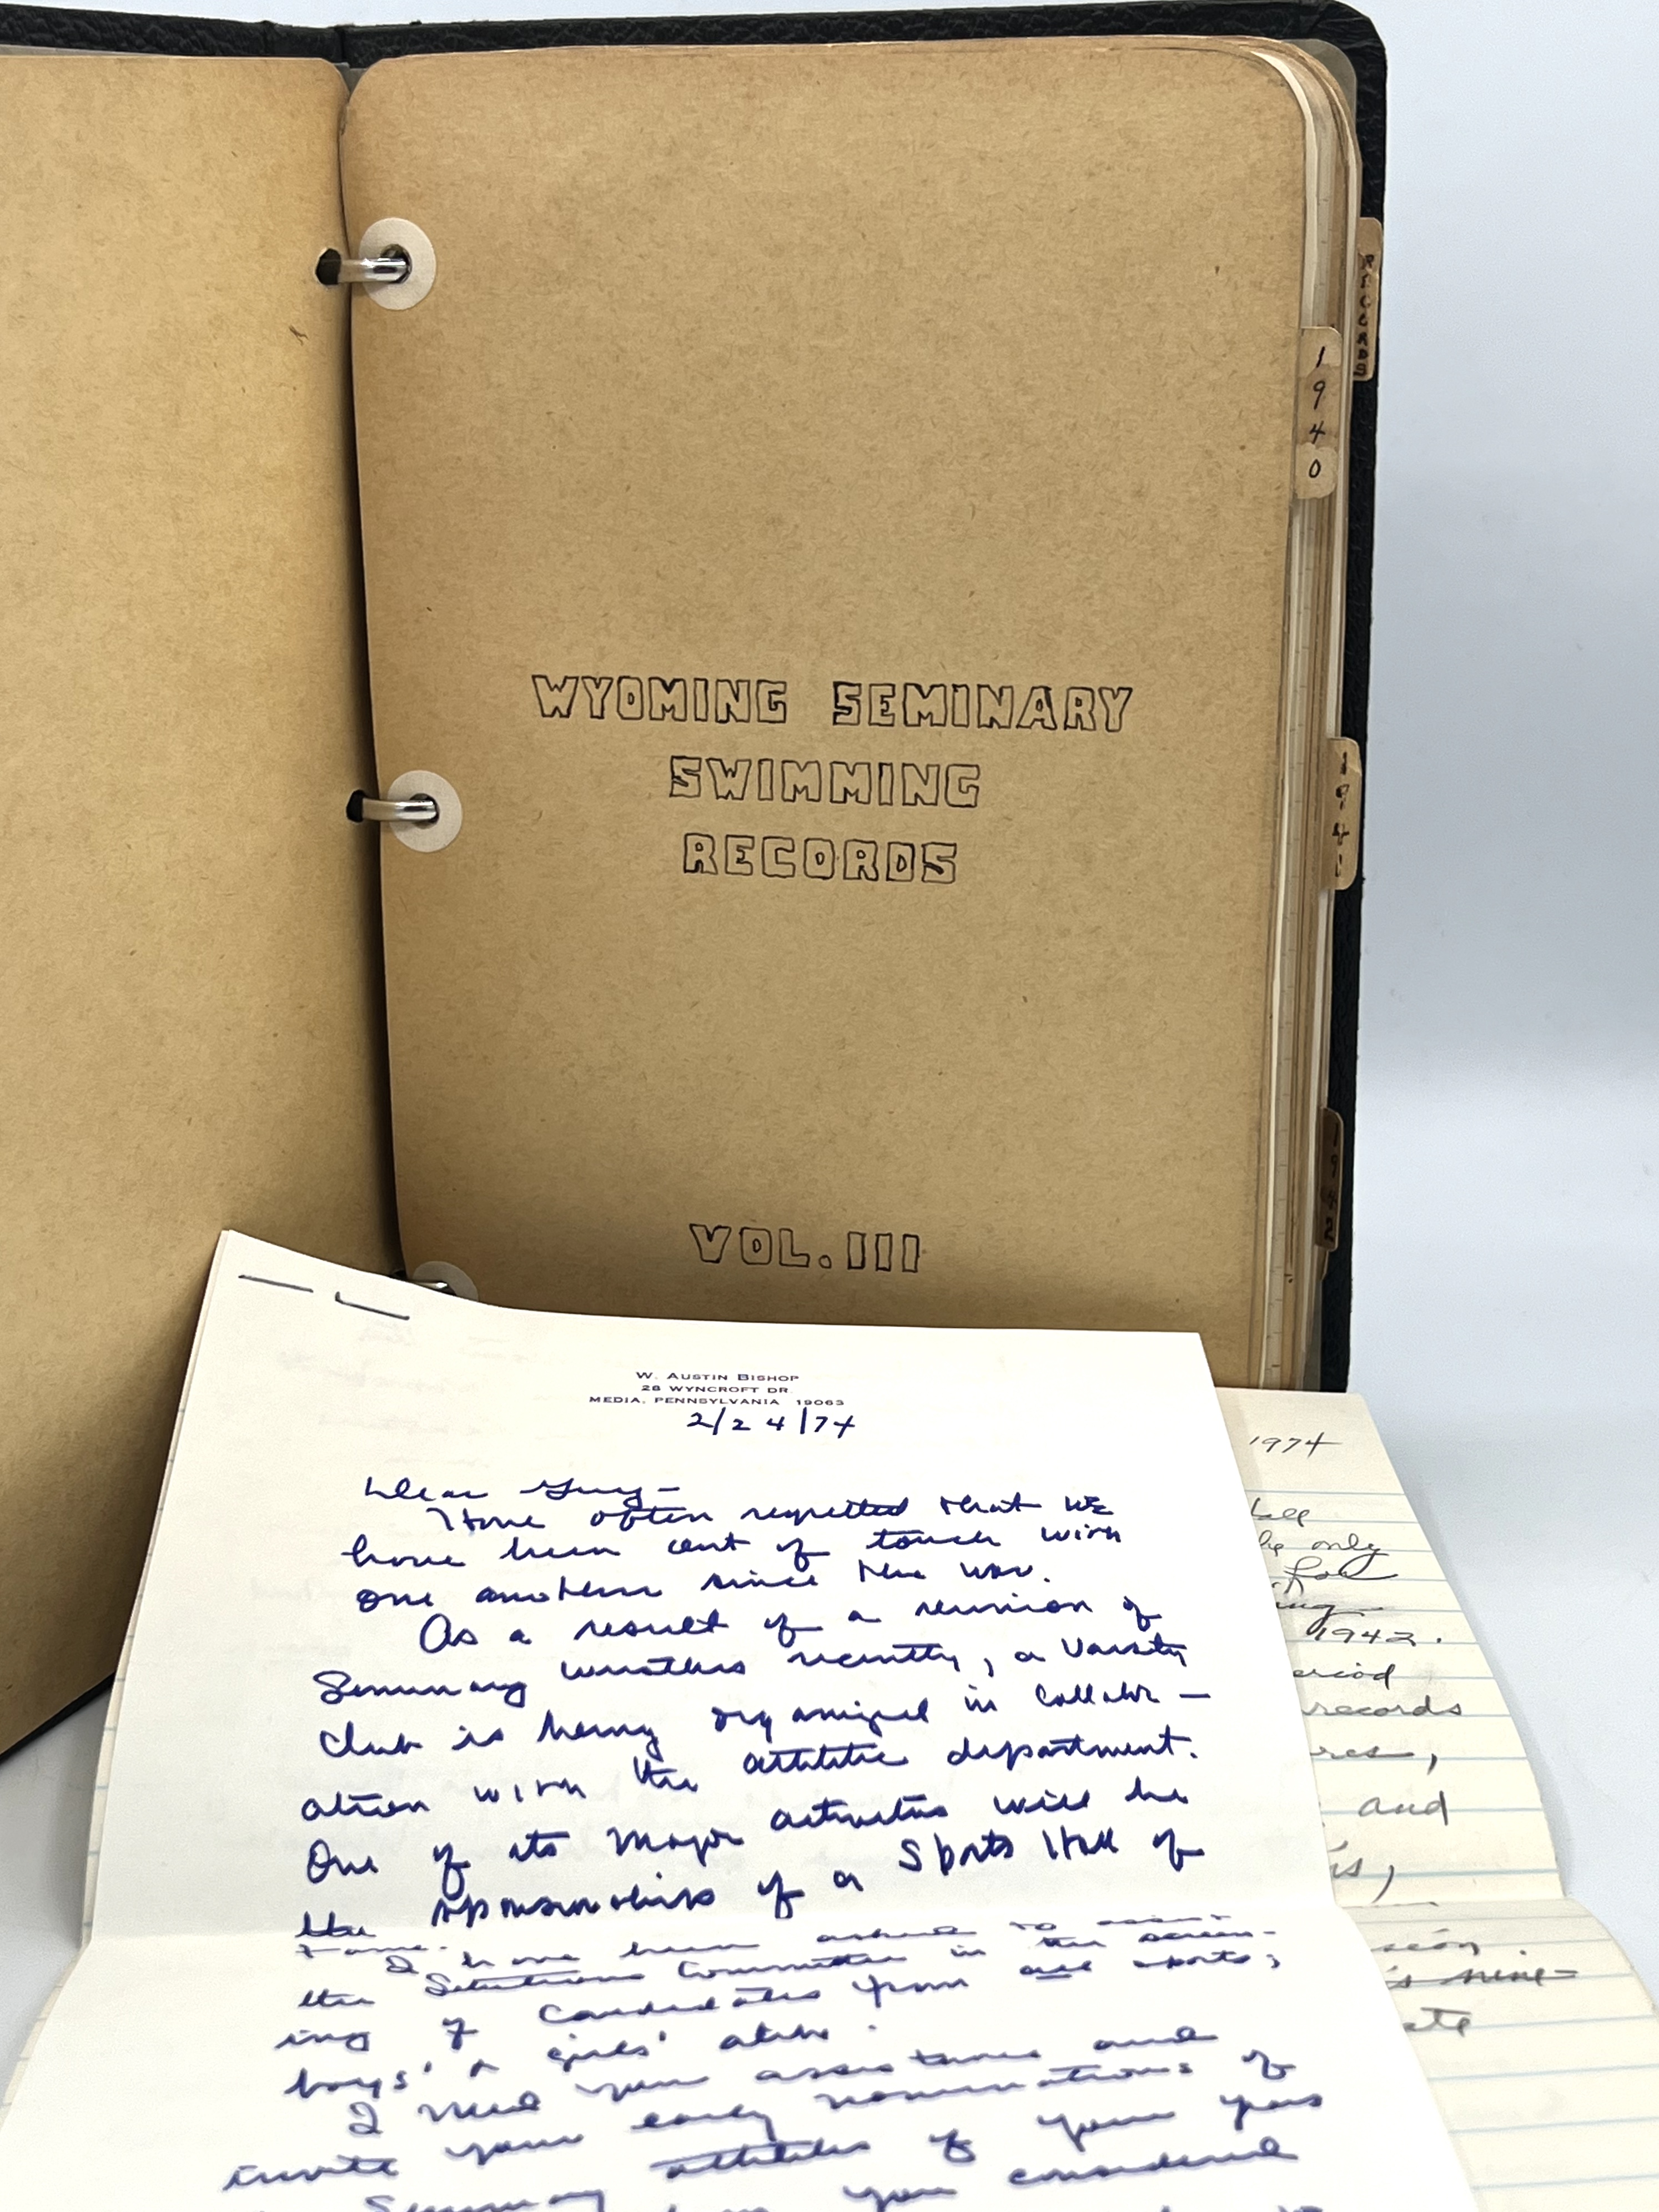 RECORDS
1940
1941
1942
WYOMING SEMINARY
SWIMMING
RECORDS
VOL. III
W. AUSTIN BISHOP
28 WYNCROFT DR.
MEDIA, PENNSYLVANIA 19063
2/24/74
Dear Guy-
Have often regretted that we
have been out of touch with
one another since the war.
As a result of a reunion of
Seminary wrestlers recently, a Varsity
Club is being organized in collabor-
ation with the athletic department.
One of its major activities will be
the sponsorship of a Sports Hall of
Fame. I have been asked to assist
the Selections Committee in the screen-
ing of candidates from all sports,
boys' & girls' alike.
I need your assistance and
invite your early nominations of
Seminary athletes of your years
you considered
1974
only
1942.
period
records
and